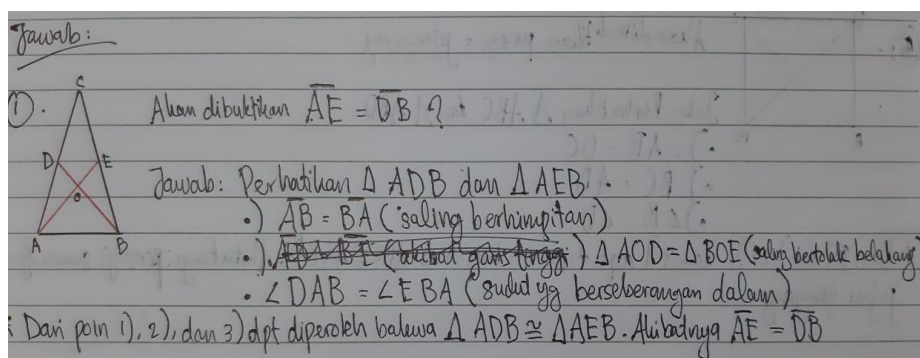 Jawab:
C
①. Akan dibuktikan A̅E̅ = D̅B̅ ?
D E
Jawab: Perhatikan Δ ADB dan Δ AEB.
O
•) A̅B̅ = B̅A̅ (saling berhimpitan)
A B
•) A̅D̅ = B̅E̅ (akibat garis tinggi) Δ AOD = Δ BOE (saling bertolak belakang)
• ∠DAB = ∠EBA (sudut yg berseberangan dalam)
: Dari poin 1), 2), dan 3) dpt diperoleh bahwa Δ ADB ≅ Δ AEB. Akibatnya A̅E̅ = D̅B̅